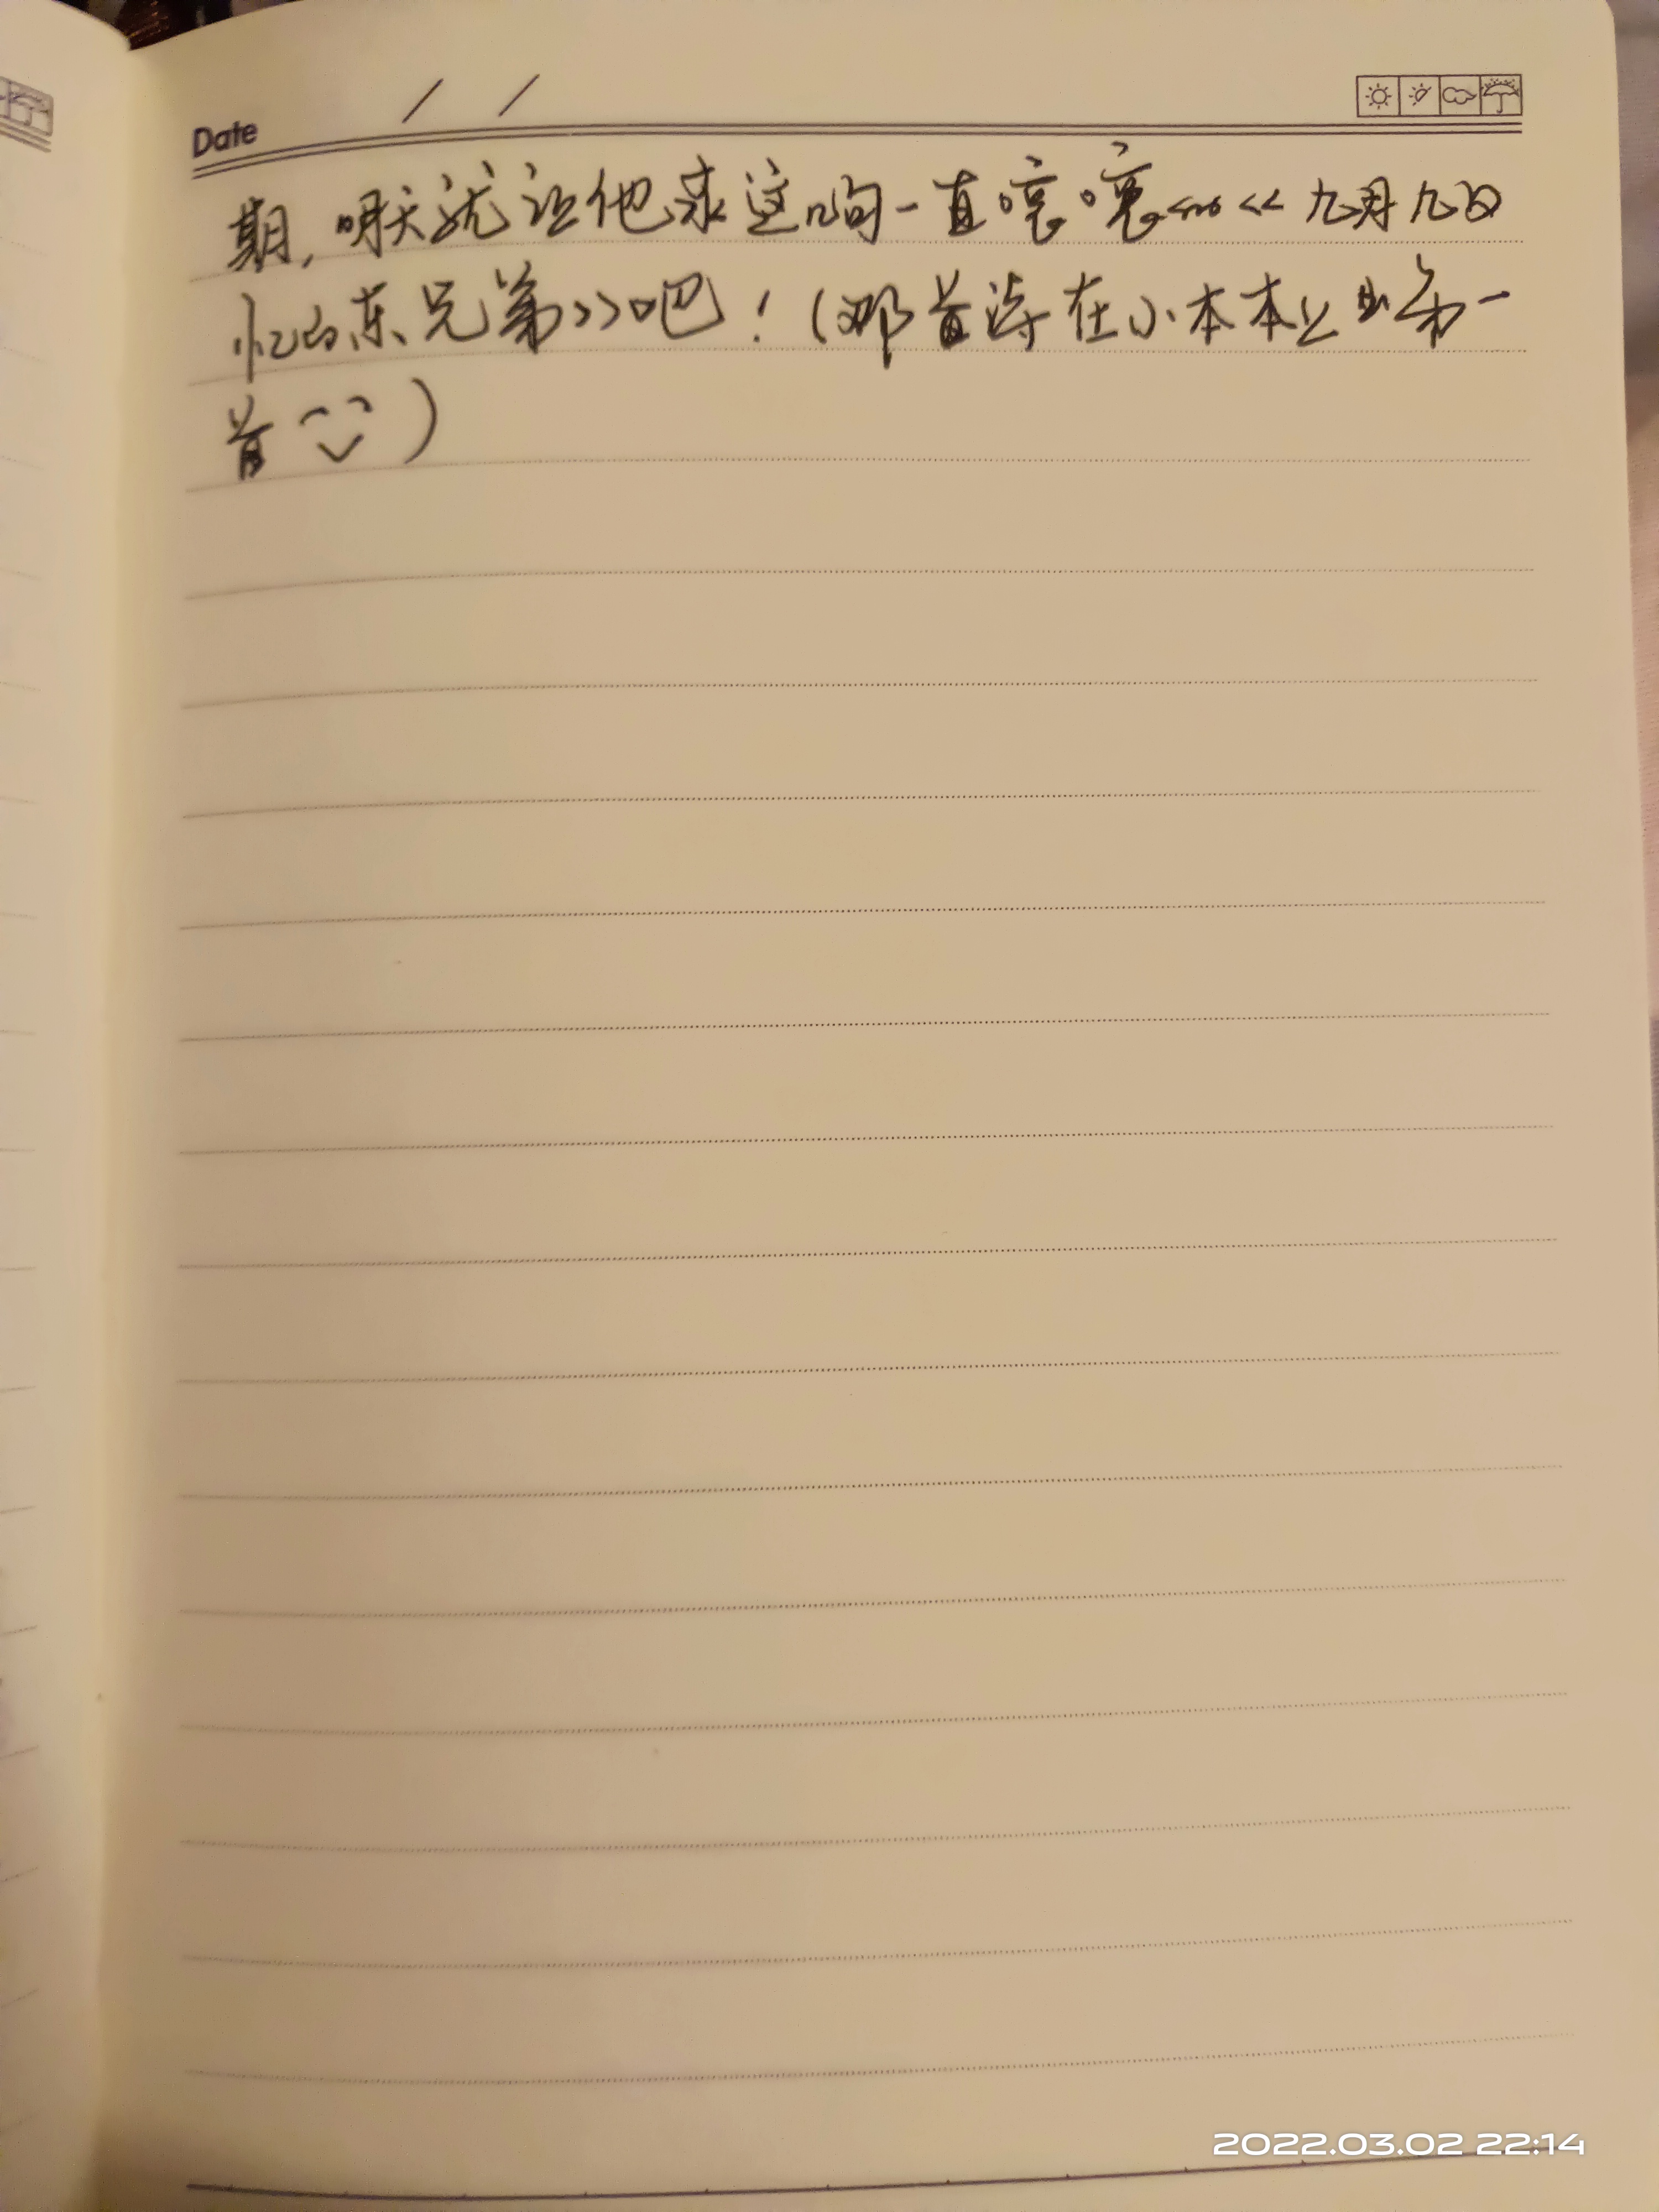 Date / /
期,明天就让他录这几句一直嚷嚷 《九月九日
忆山东兄弟》吧!(那首诗在小本本上 第一
首)
2022.03.02 22:14